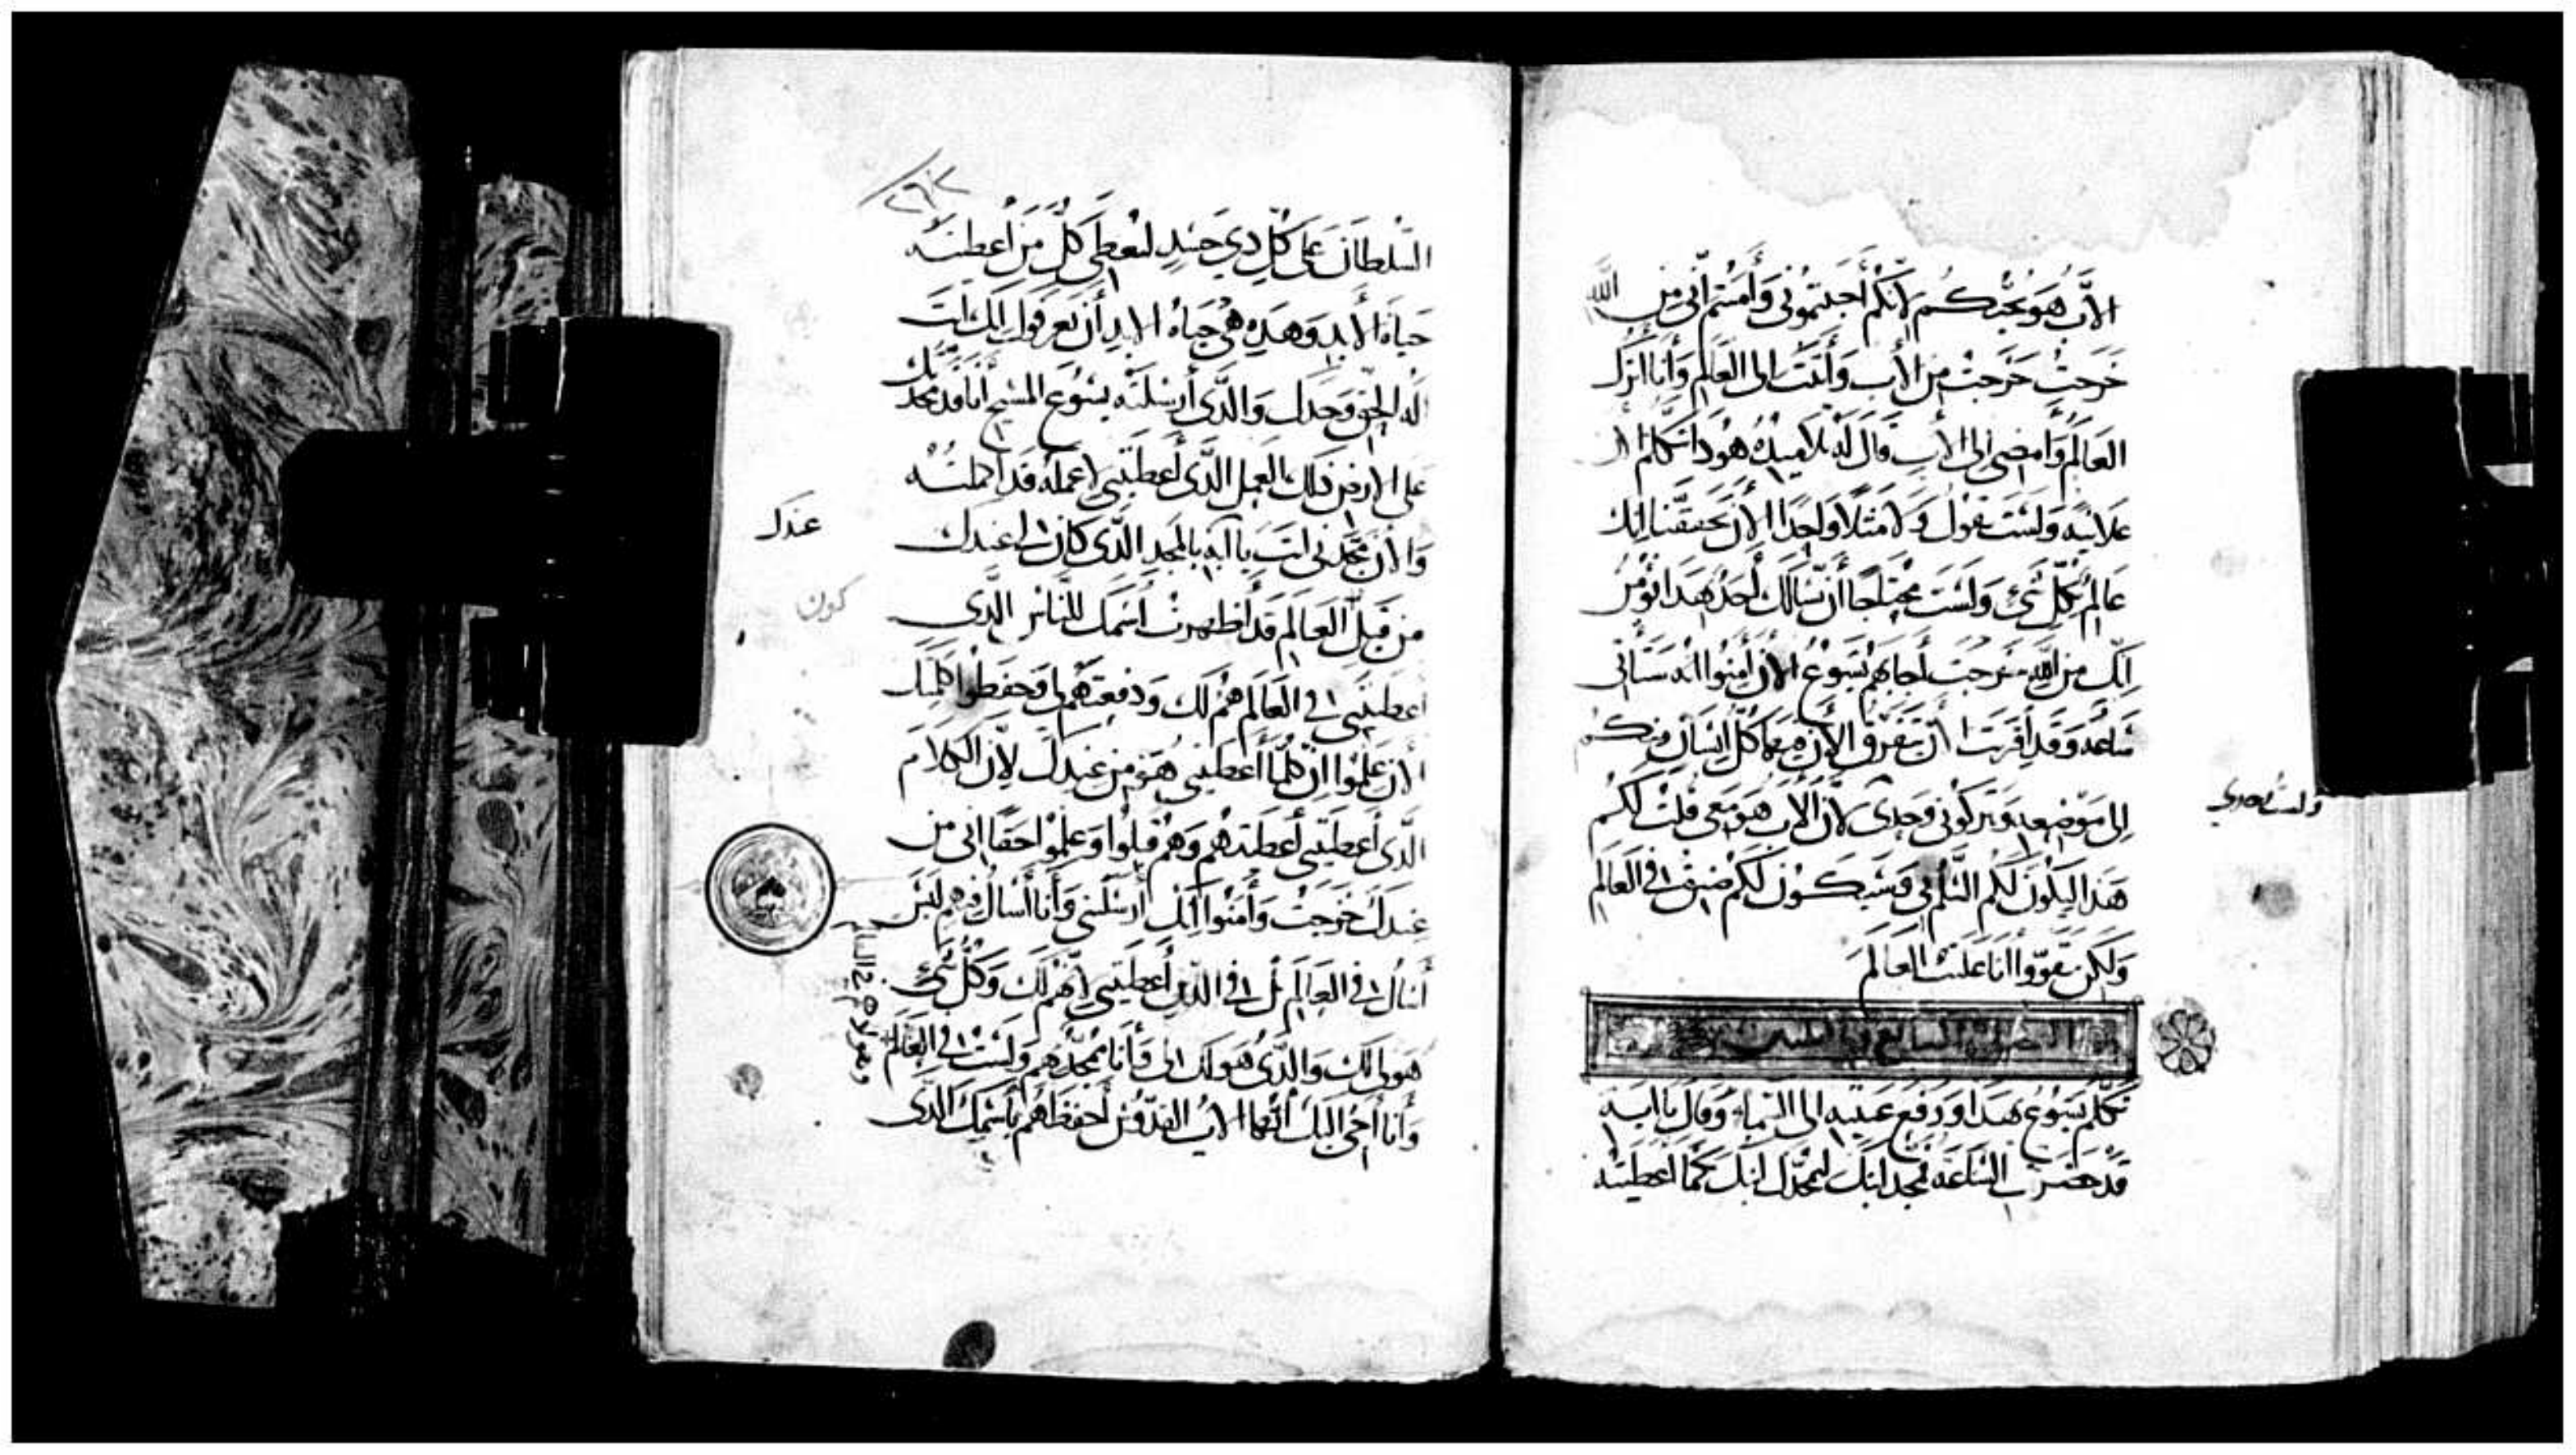 الآب هو يحبكم لانكم احببتموني وامنتم اني من الله
خرجت خرجت من الأب وأتيت الى العالم وأنا اترك
العالم وامضي الى الأب قال له تلاميذه هوذا تتكلم الان
علانيه ولست تقول ولا مثلا واحدا الان تحققنا انك
عالم بكل شي ولست محتاجا أن يسالك أحد بهدا نومن
انك من الله خرجت أجابهم يسوع الان أمنوا انه ستأتي
ساعه وقد اقتربت أن يتفرق الأن فيها كل انسان منكم
الى موضعه وتتركوني وحدي لان الأب هو معي قلت لكم
هدا ليكون لكم السلم في وسيكون لكم ضيق في العالم
ولكن تقووا أنا غلبت العالم
ولست وحدي
الفصل السابع
تكلم يسوع بهدا ورفع عينيه الى السماء وقال يا ابه
قد حضرت الساعه فمجد ابنك ليمجدك ابنك كما اعطيته
٢٩٢
السلطان على كل دي جسد ليعطي كل من أعطيته
حياة الأبد وهده هي حياة الابد أن يعرفوا انك انت
اله الحق وحدك والدي أرسلته يسوع المسيح أنا قد مجدتك
على الارض دلك العمل الدي أعطيتني لاعمله قد اكملته
والان مجدني انت يا ابه بالمجد الدي كان لي عندك
عندك
من قبل العالم قد أظهرت أسمك للناس الدي
كون
أعطيتني في العالم هم لك ودفعتهم لي وحفظوا كلمتك
الان علموا ان كلما أعطيتني هو من عندك لان الكلام
الدي أعطيتني أعطيتهم وهم قبلوا وعلموا حقا اني من
عندك خرجت وأمنوا انك أرسلتني وأنا أسال فيهم ليس
أسال في العالم بل في الدين أعطيتني لانهم لك وكل شي
هو لي لك والدي هو لك لي وأنا ممجد بهم ولست في العالم
وهولاء هم في العالم
وأنا أجي اليك أيها الاب القدوس أحفظهم بأسمك الدي